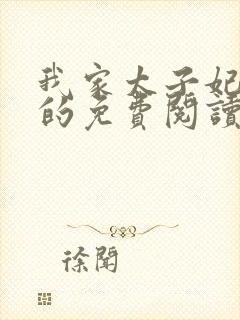 我家太子妃
的免費閱讀
徐聞